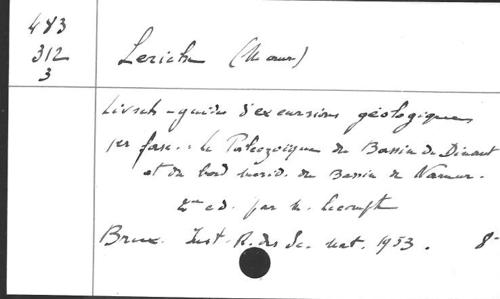 483
312
3
Leriche (Maur)
Livrets-guides d'excursions géologiques
1er fasc. : le Paléozoïque du Bassin de Dinant
et du bord mérid. du Bassin de Namur.
2me ed. par M. Lecompte
Brux. Inst. R. des Sc. nat. 1953. 8-